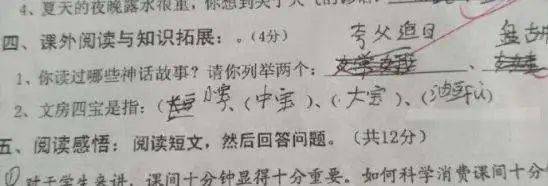 4、夏天的夜晚露水很重，你想到关于天气的谚语
四、课外阅读与知识拓展：。（4分） 夸父追日
1、你读过哪些神话故事？请你列举两个： 、
2、文房四宝是指：（ 小宝、（中宝）、（大宝）、（ ）
五、阅读感悟：阅读短文，然后回答问题。（共12分）
① 对于学生来讲，课间十分钟显得十分重要。如何科学消费课间十分